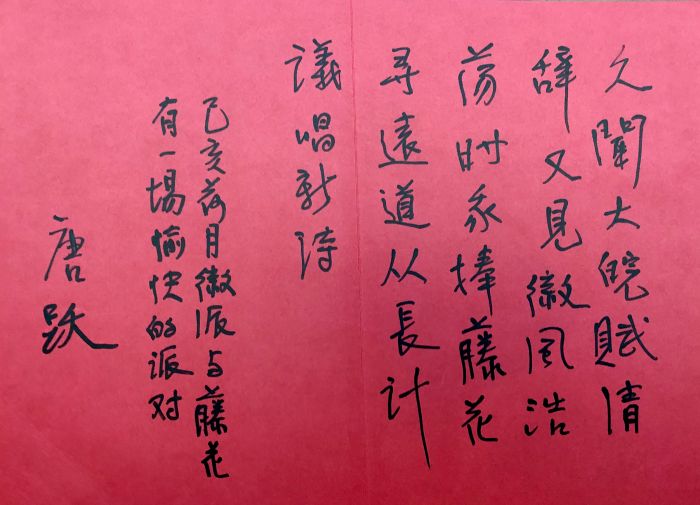 久闻大皖赋清
辞又见徽风浩
荡时我捧藤花
寻遠道从長计
議唱新诗
己亥荷月徽派与藤花
有一場愉快的派对
唐跃